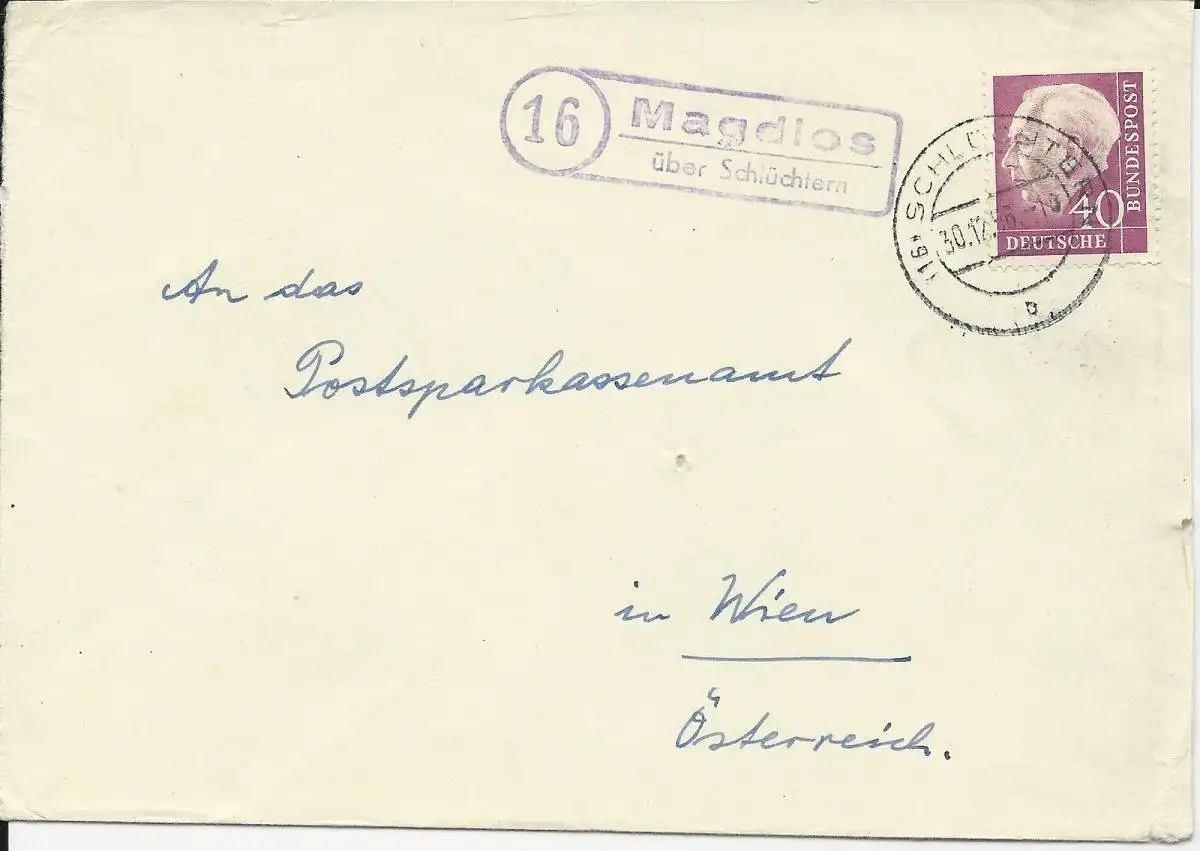 16
Magdlos
über Schlüchtern
40
DEUTSCHE
BUNDESPOST
(16) SCHLÜCHTERN
30.12.56
An das
Postsparkassenamt
in Wien
Österreich.